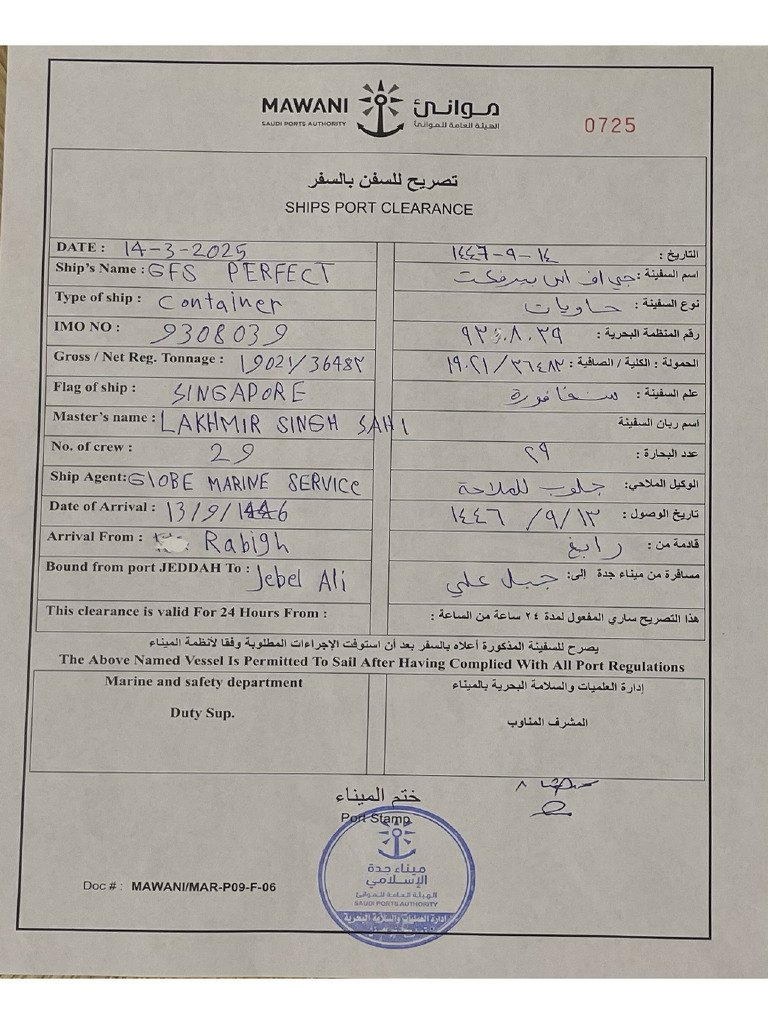 MAWANI موانئ
SAUDI PORTS AUTHORITY الهيئة العامة للموانئ
0725
تصريح للسفن بالسفر
SHIPS PORT CLEARANCE
DATE : 14-3-2025 التاريخ : ١٤-٩-١٤٤٦
Ship's Name : GFS PERFECT اسم السفينة : جي اف اس بيرفكت
Type of ship : Container نوع السفينة : حاويات
IMO NO : 9308039 رقم المنظمة البحرية : ٩٣٠٨٠٣٩
Gross / Net Reg. Tonnage : 19021/36483 الحمولة : الكلية / الصافية : ١٩٠٢١/٣٦٤٨٣
Flag of ship : SINGAPORE علم السفينة : سنغافورة
Master's name : LAKHMIR SINGH SAHI اسم ربان السفينة
No. of crew : 29 عدد البحارة : ٢٩
Ship Agent: GlOBE MARINE SERVICE الوكيل الملاحي: جلوب للملاحة
Date of Arrival : 13/9/1446 تاريخ الوصول : ١٣/٩/١٤٤٦
Arrival From : Rabigh قادمة من : رابغ
Bound from port JEDDAH To : Jebel Ali مسافرة من ميناء جدة إلى: جبل علي
This clearance is valid For 24 Hours From : هذا التصريح ساري المفعول لمدة ٢٤ ساعة من الساعة :
يصرح للسفينة المذكورة أعلاه بالسفر بعد أن استوفت الإجراءات المطلوبة وفقا لأنظمة الميناء
The Above Named Vessel Is Permitted To Sail After Having Complied With All Port Regulations
Marine and safety department إدارة العلميات والسلامة البحرية بالميناء
Duty Sup. المشرف المناوب
ختم الميناء
Port Stamp
ميناء جدة
الإسلامي
الهيئة العامة للموانئ
SAUDI PORTS AUTHORITY
إدارة العمليات والسلامة البحرية
Doc # : MAWANI/MAR-P09-F-06